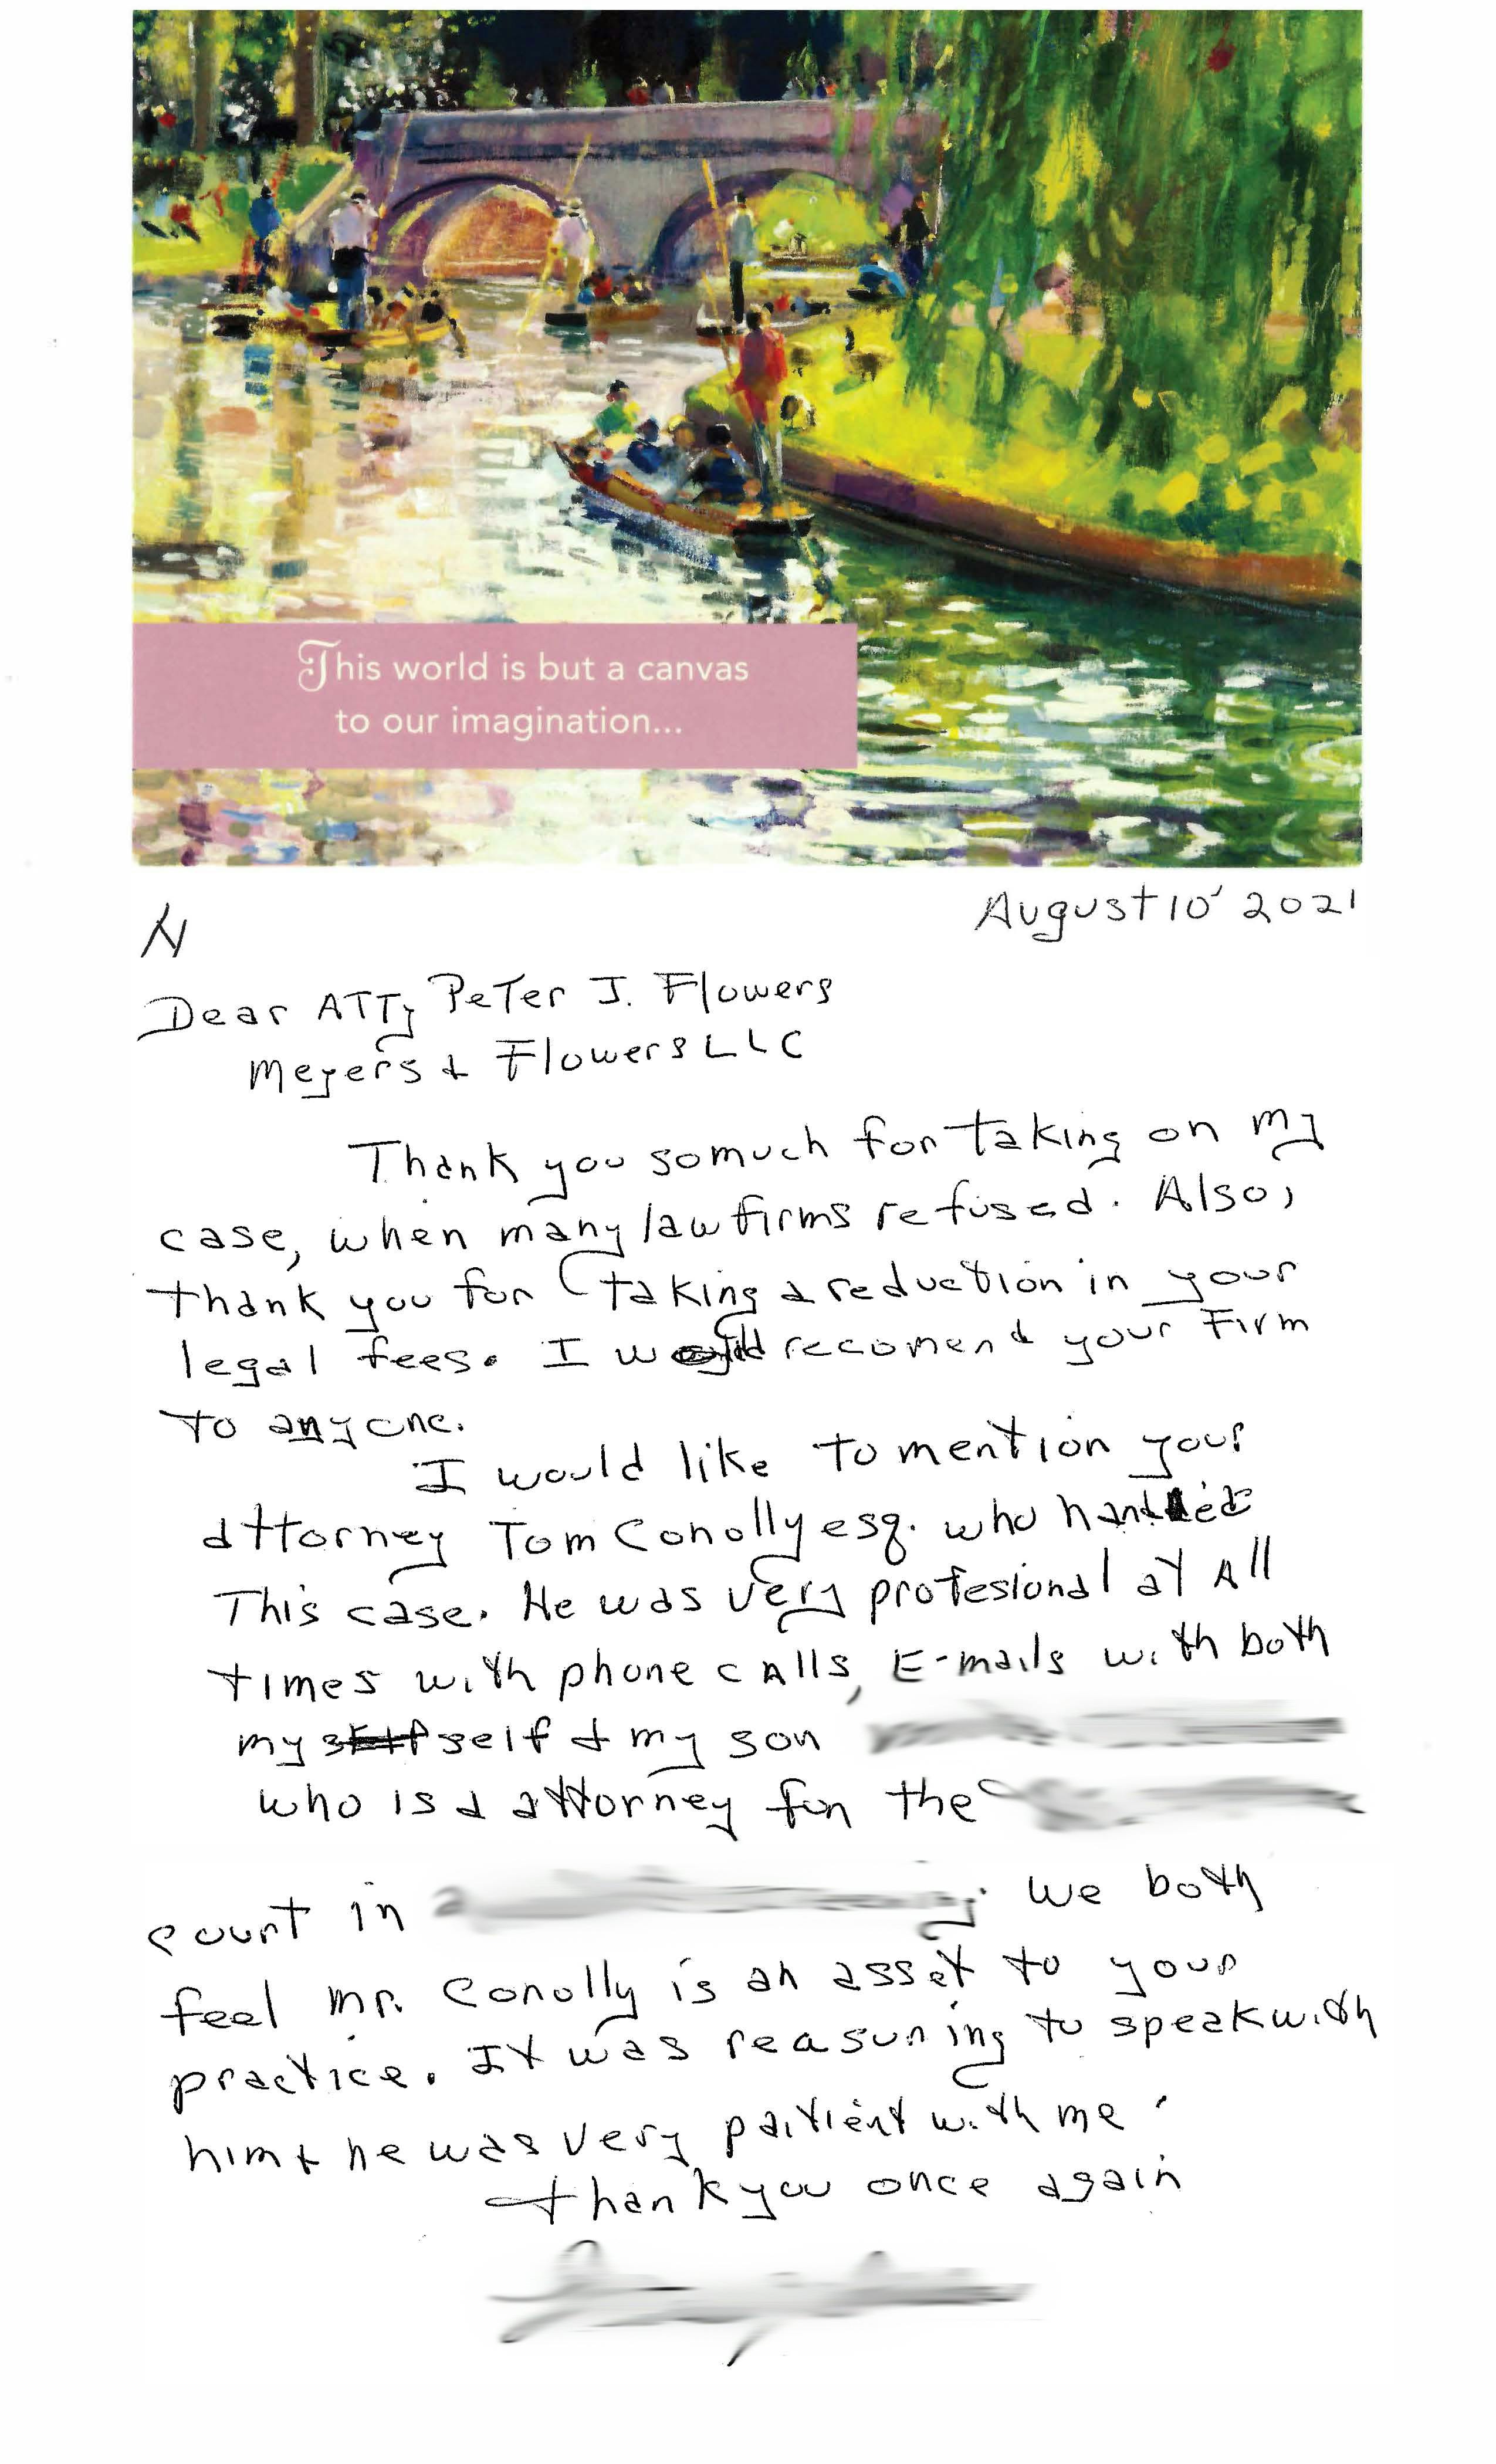 This world is but a canvas
to our imagination...
August 10' 2021
Dear ATTy PeTer J. Flowers
Meyers & Flowers LLC
Thank you somuch for taking on my
case, when many law firms refused. Also,
thank you for taking a reduction in your
legal fees. I would recomend your Firm
to anyone.
I would like to mention your
attorney Tom Conolly esq. who handled
This case. He was very profesional at All
times with phone cAlls, E-mails with both
my self & my son
who is a attorney for the
court in
we both
feel mr. Conolly is an asset to your
practice. It was reasuning to speak with
him & he was very paitient with me.
thank you once again